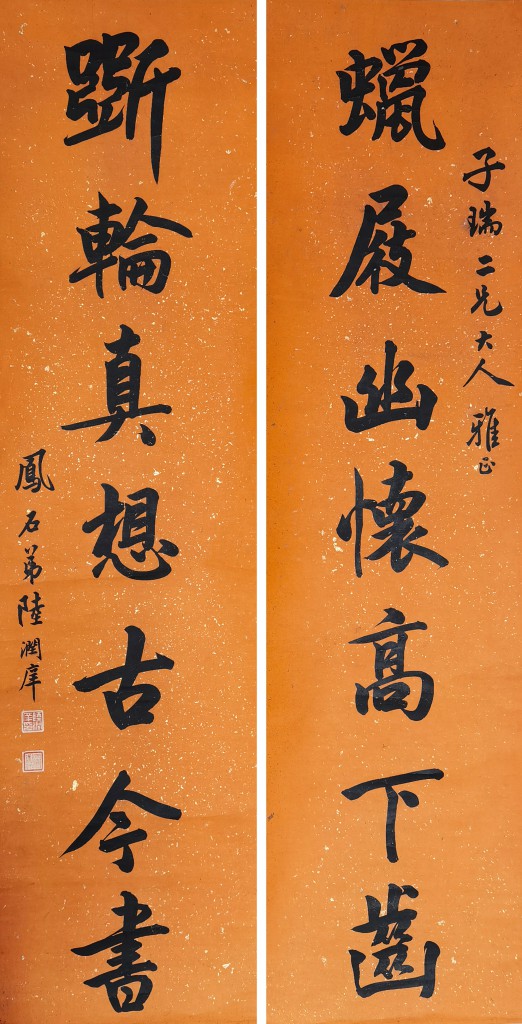 子瑞二兄大人雅正
蠟屐幽懷高下齒
斲輪真想古今書
鳳石弟陸潤庠